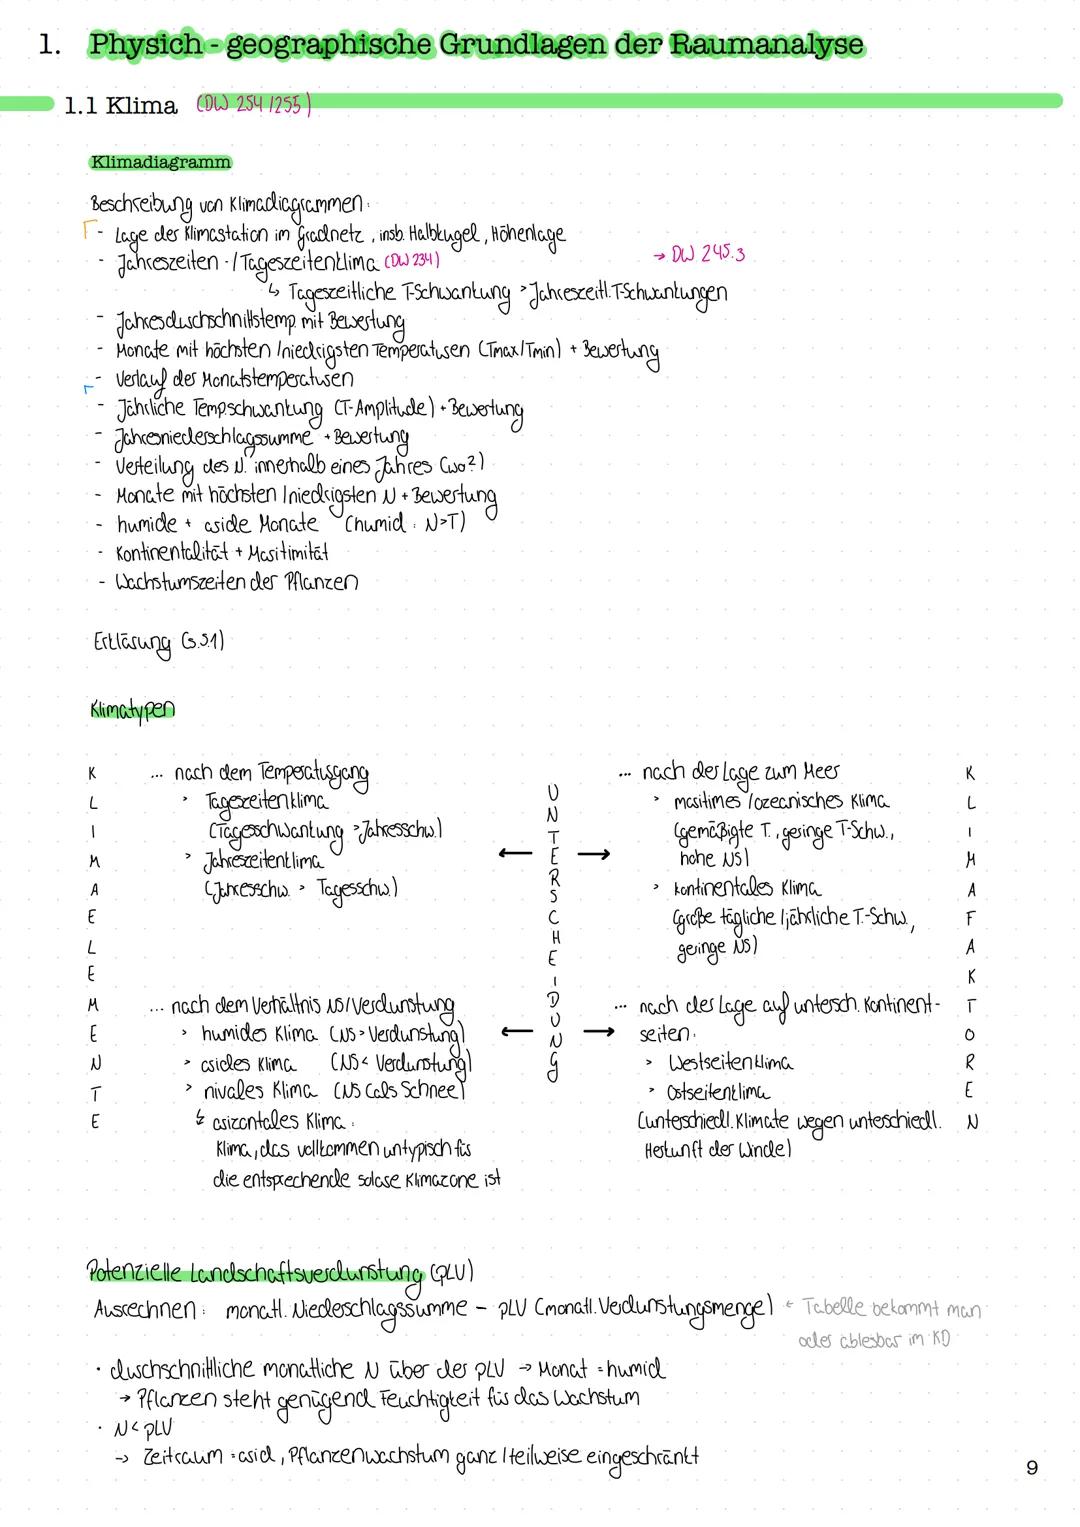 1. Physich - geographische Grundlagen der Raumanalyse
1.1 Klima (DW 254 /255)
Klimadiagramm
Beschreibung von Klimadiagrammen:
- Lage der Klimastation im Gradnetz, insb. Halbkugel, Höhenlage
- Jahreszeiten-/Tageszeitenklima (DW 234) → DW 245.3
↳ Tageszeitliche T-Schwankung > Jahreszeitl. T-Schwankungen
- Jahresdurchschnittstemp. mit Bewertung
- Monate mit höchsten /niedrigsten Temperaturen (Tmax/Tmin) + Bewertung
- Verlauf der Monatstemperaturen
- Jährliche Tempschwankung (T-Amplitude) + Bewertung
- Jahresniederschlagssumme + Bewertung
- Verteilung des N. innerhalb eines Jahres (wo?)
- Monate mit höchsten /niedrigsten N + Bewertung
- humide + aride Monate (humid: N>T)
- Kontinentalität + Maritimität
- Wachstumszeiten der Pflanzen
Erklärung (s.S.1)
Klimatypen
KLIMAELEMENTE
... nach dem Temperaturgang
> Tageszeitenklima
(Tagesschwankung > Jahresschw.)
> Jahreszeitenklima
(Jahresschw. > Tagesschw.)
... nach dem Verhältnis NS/Verdunstung
> humides Klima (NS > Verdunstung)
> arides Klima (NS < Verdunstung)
> nivales Klima (NS (als Schnee)
↳ azizontales Klima:
Klima, das vollkommen untypisch für
die entsprechende solare Klimazone ist
← UNTERSCHEIDUNG →
← →
... nach der Lage zum Meer
> maritimes /ozeanisches Klima
(gemäßigte T., geringe T-Schw.,
hohe NS)
> kontinentales Klima
(große tägliche /jährliche T.-Schw.,
geringe NS)
... nach der Lage auf untersch. Kontinent-
seiten:
> Westseitenklima
> Ostseitenklima
(unterschiedl. Klimate wegen unteschiedl.
Herkunft der Winde)
KLIMAFAKTOREN
Potenzielle Landschaftsverdunstung (pLV)
Ausrechnen: monatl. Niederschlagssumme - pLV (monatl. Verdunstungsmenge) ← Tabelle bekommt man
oder ablesbar im KD
· durchschnittliche monatliche N über der pLV → Monat = humid
→ Pflanzen steht genügend Feuchtigkeit für das Wachstum
· N < pLV
→ Zeitraum = arid, Pflanzenwachstum ganz /teilweise eingeschränkt
9